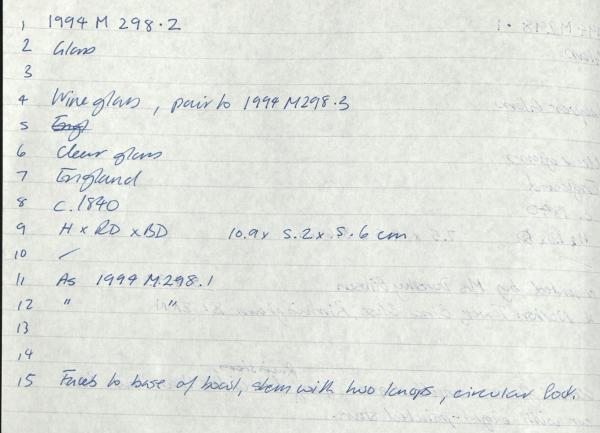 1 1994 M 298.2
2 Glass
3
4 Wine glass, pair to 1994 M298.3
5 Engl
6 Clear glass
7 England
8 c. 1840
9 H x RD x BD 10.9 x 5.2 x 5.6 cm
10 ✓
11 As 1994 M.298.1
12 " "
13
14
15 Facets to base of bowl, stem with two knops, circular foot.